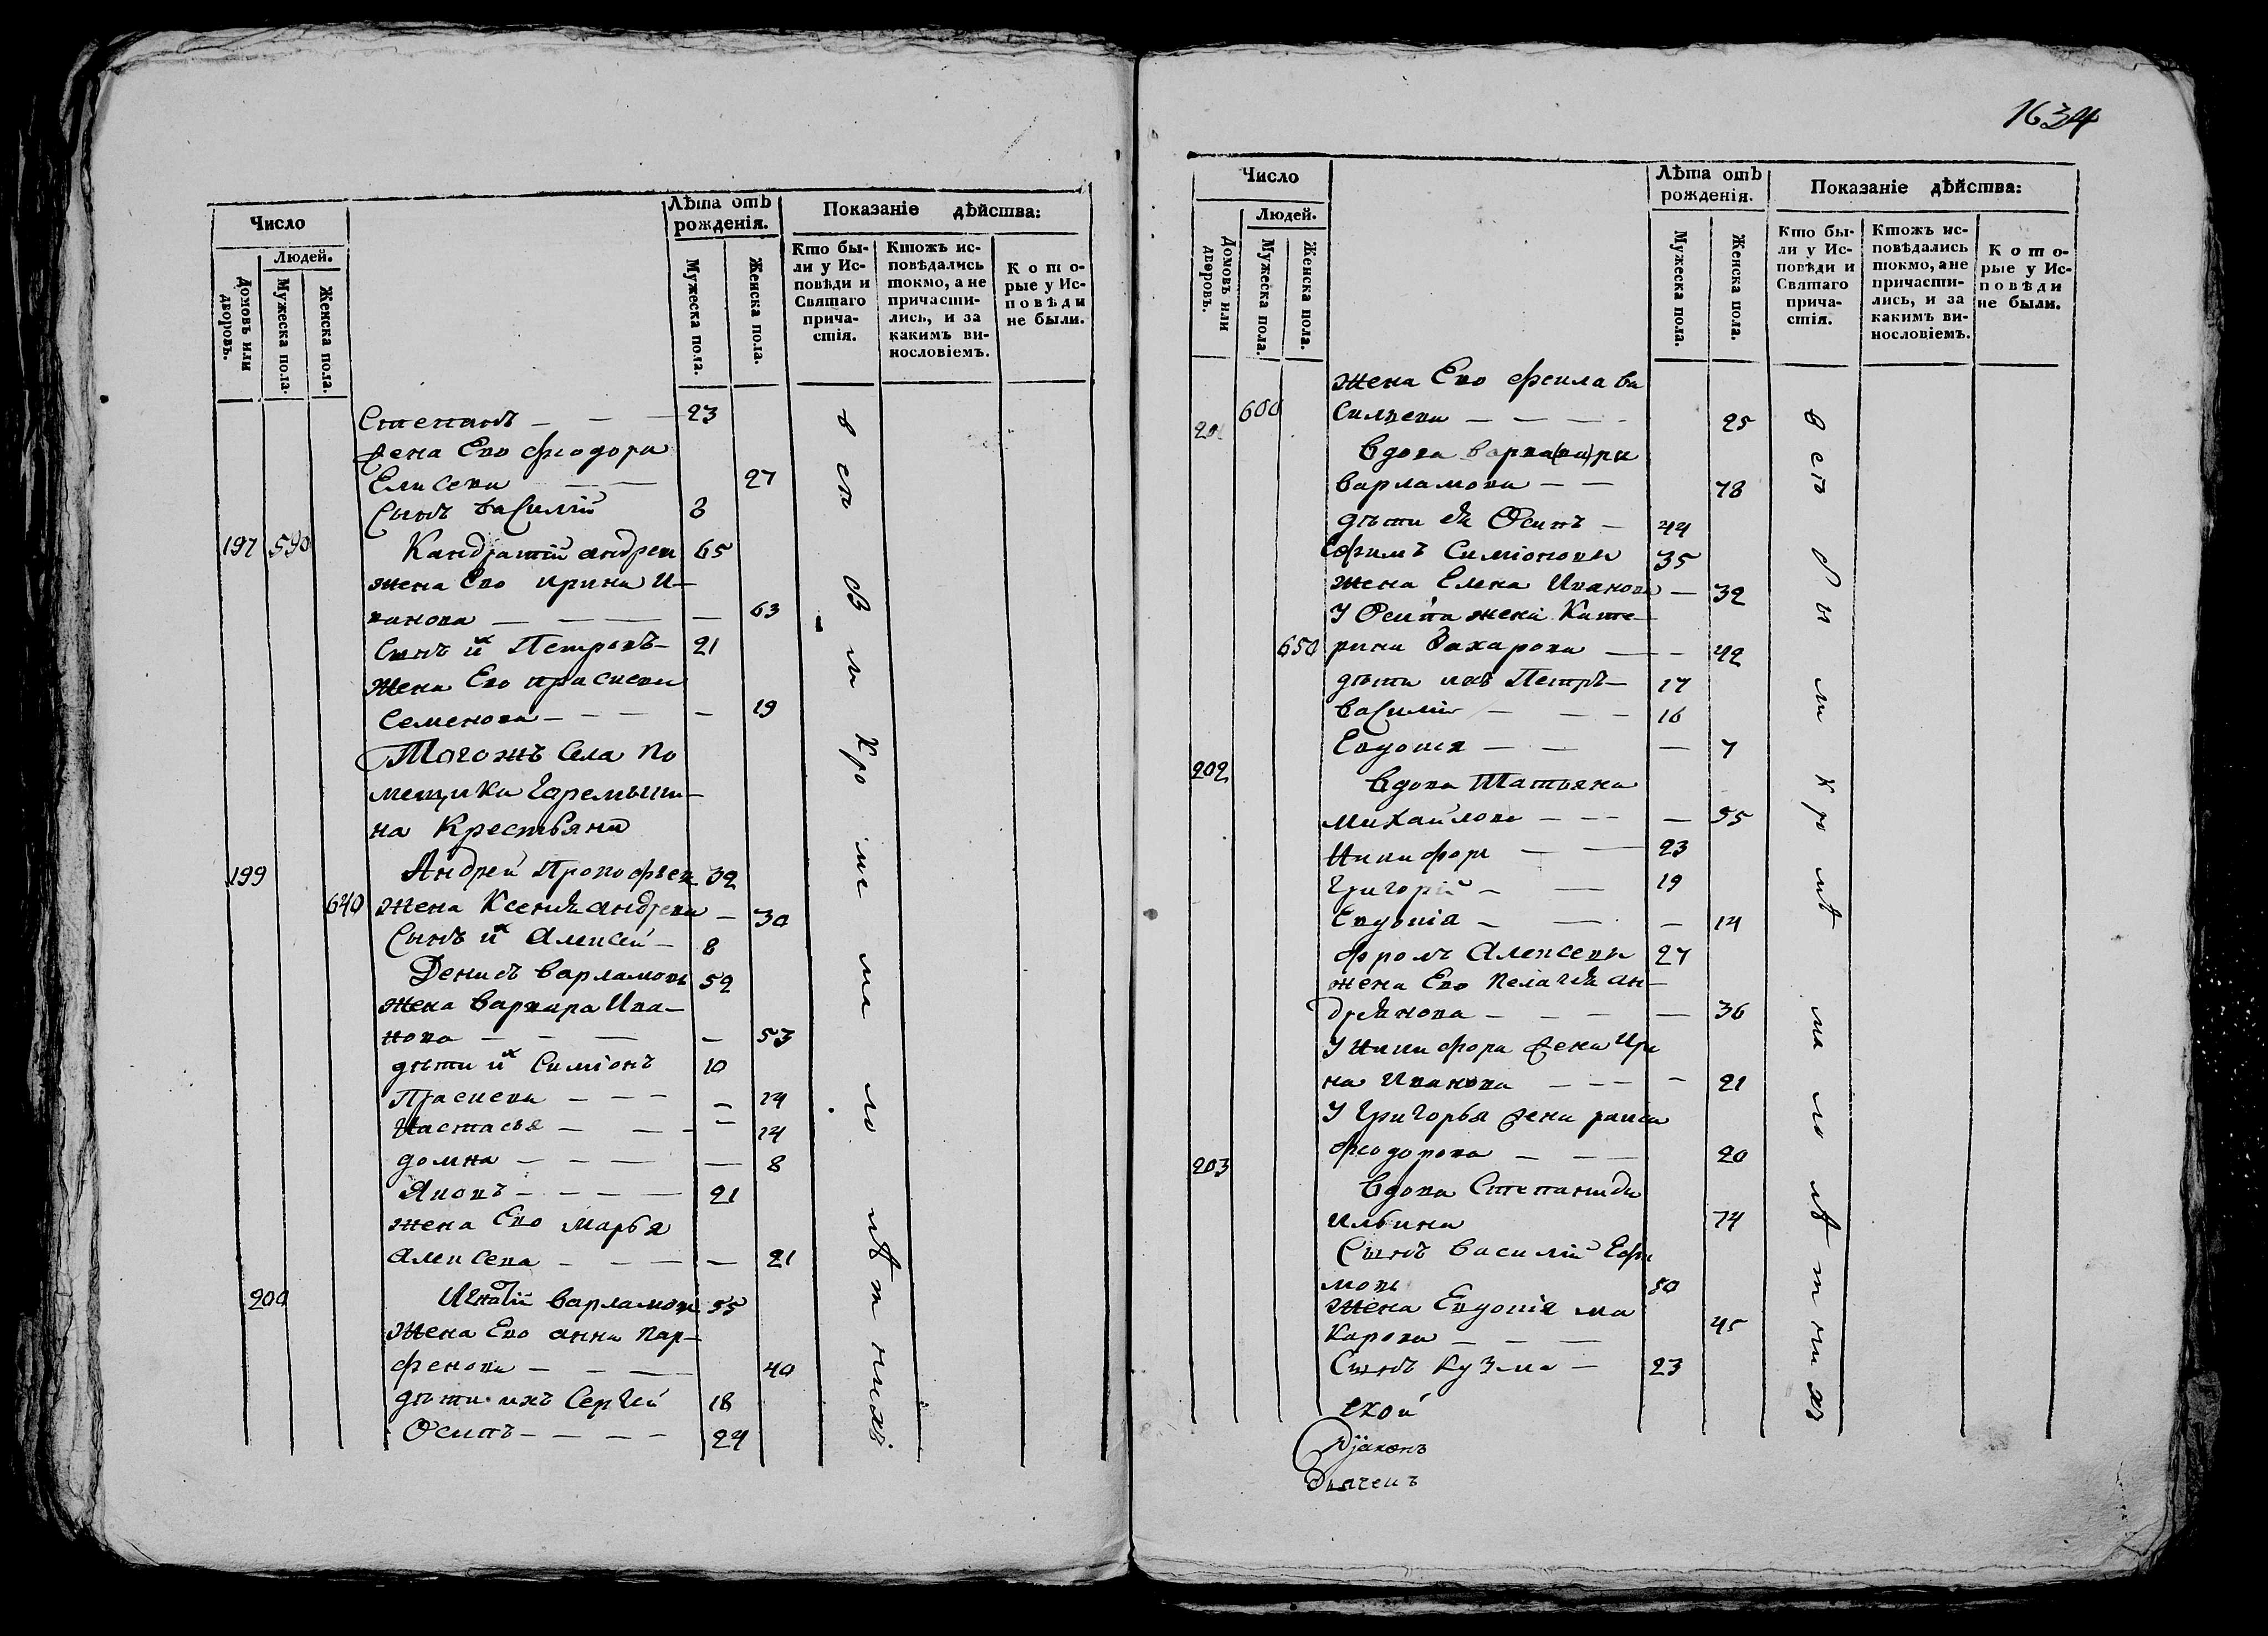 Число
Людей.
Домовъ или дворовъ.
Мужеска пола.
Женска пола.
Лѣта отъ рожденія.
Мужеска пола.
Женска пола.
Показаніе дѣйства:
Кто были у Исповѣди и Святаго причастія.
Ктожъ исповѣдались токмо, а не причастились, и за какимъ винословіемъ.
Которые у Исповѣди не были.
Степанъ — — — 23
жена Ево Феодора
Елисеева — — 27
Сынъ василій 8
197 590 Кандратий андреев 65
жена Ево ирина И-
ванова — — — — 63
Сынъ их Петровъ — 21
Жена Ево прасковя
Семенова — — — — 19
Тогожъ Села По
мещика Черемыши-
на Крестьяня
199 Андрей Прокофьев 32
640 жена Ксения андреева — 30
Сынъ их Алексей — 8
Денисъ варламовъ 52
жена варвара Ива-
нова — — — — 53
дѣти их Симіонъ 10
Прасковя — — — — 14
Настасья — — — 14
домна — — — — 8
Яковъ — — — — 21
жена Ево марья
алексева — — — — 21
200 Игнатій варламовъ 55
жена Ево анна пар-
фенова — — — 40
дѣти ихъ Сергей 18
Осипъ — — — — 24
все были кроме малолѣтнихъ
1634
Число
Людей.
Домовъ или дворовъ.
Мужеска пола.
Женска пола.
Лѣта отъ рожденія.
Мужеска пола.
Женска пола.
Показаніе дѣйства:
Кто были у Исповѣди и Святаго причастія.
Ктожъ исповѣдались токмо, а не причастились, и за какимъ винословіемъ.
Которые у Исповѣди не были.
жена Ево Фекла ва
600 Сильева — — — — 25
вдова
варламова — — 78
дѣти ея Осипъ — 44
Ефимъ Симіоновъ 35
жена Елена Иванова — 32
У Осипа жена Кате-
650 рина Захарова — — 42
дѣти ихъ Петръ — 17
василій — — — 16
Евдокія — — — 7
202 вдова Татьяна
михайлова — — — — 55
Никифоръ — — 23
Григорій — — 19
Евдокія — — — 14
Фролъ Алексевъ 27
жена Ево пелагия ан-
дреянова — — — — 36
У Никифора жена Ири
на Иванова — — — — 21
У Григорья жена раиса
Феодорова — — — 20
203 вдова Степанида
ильина 74
Сынъ василій Ефи
мовъ 50
жена Евдокія ма
карова — — — 45
Сынъ Кузма — 23
всѣ были кромѣ малолѣтнихъ
ской
Діаконъ
Дьячекъ